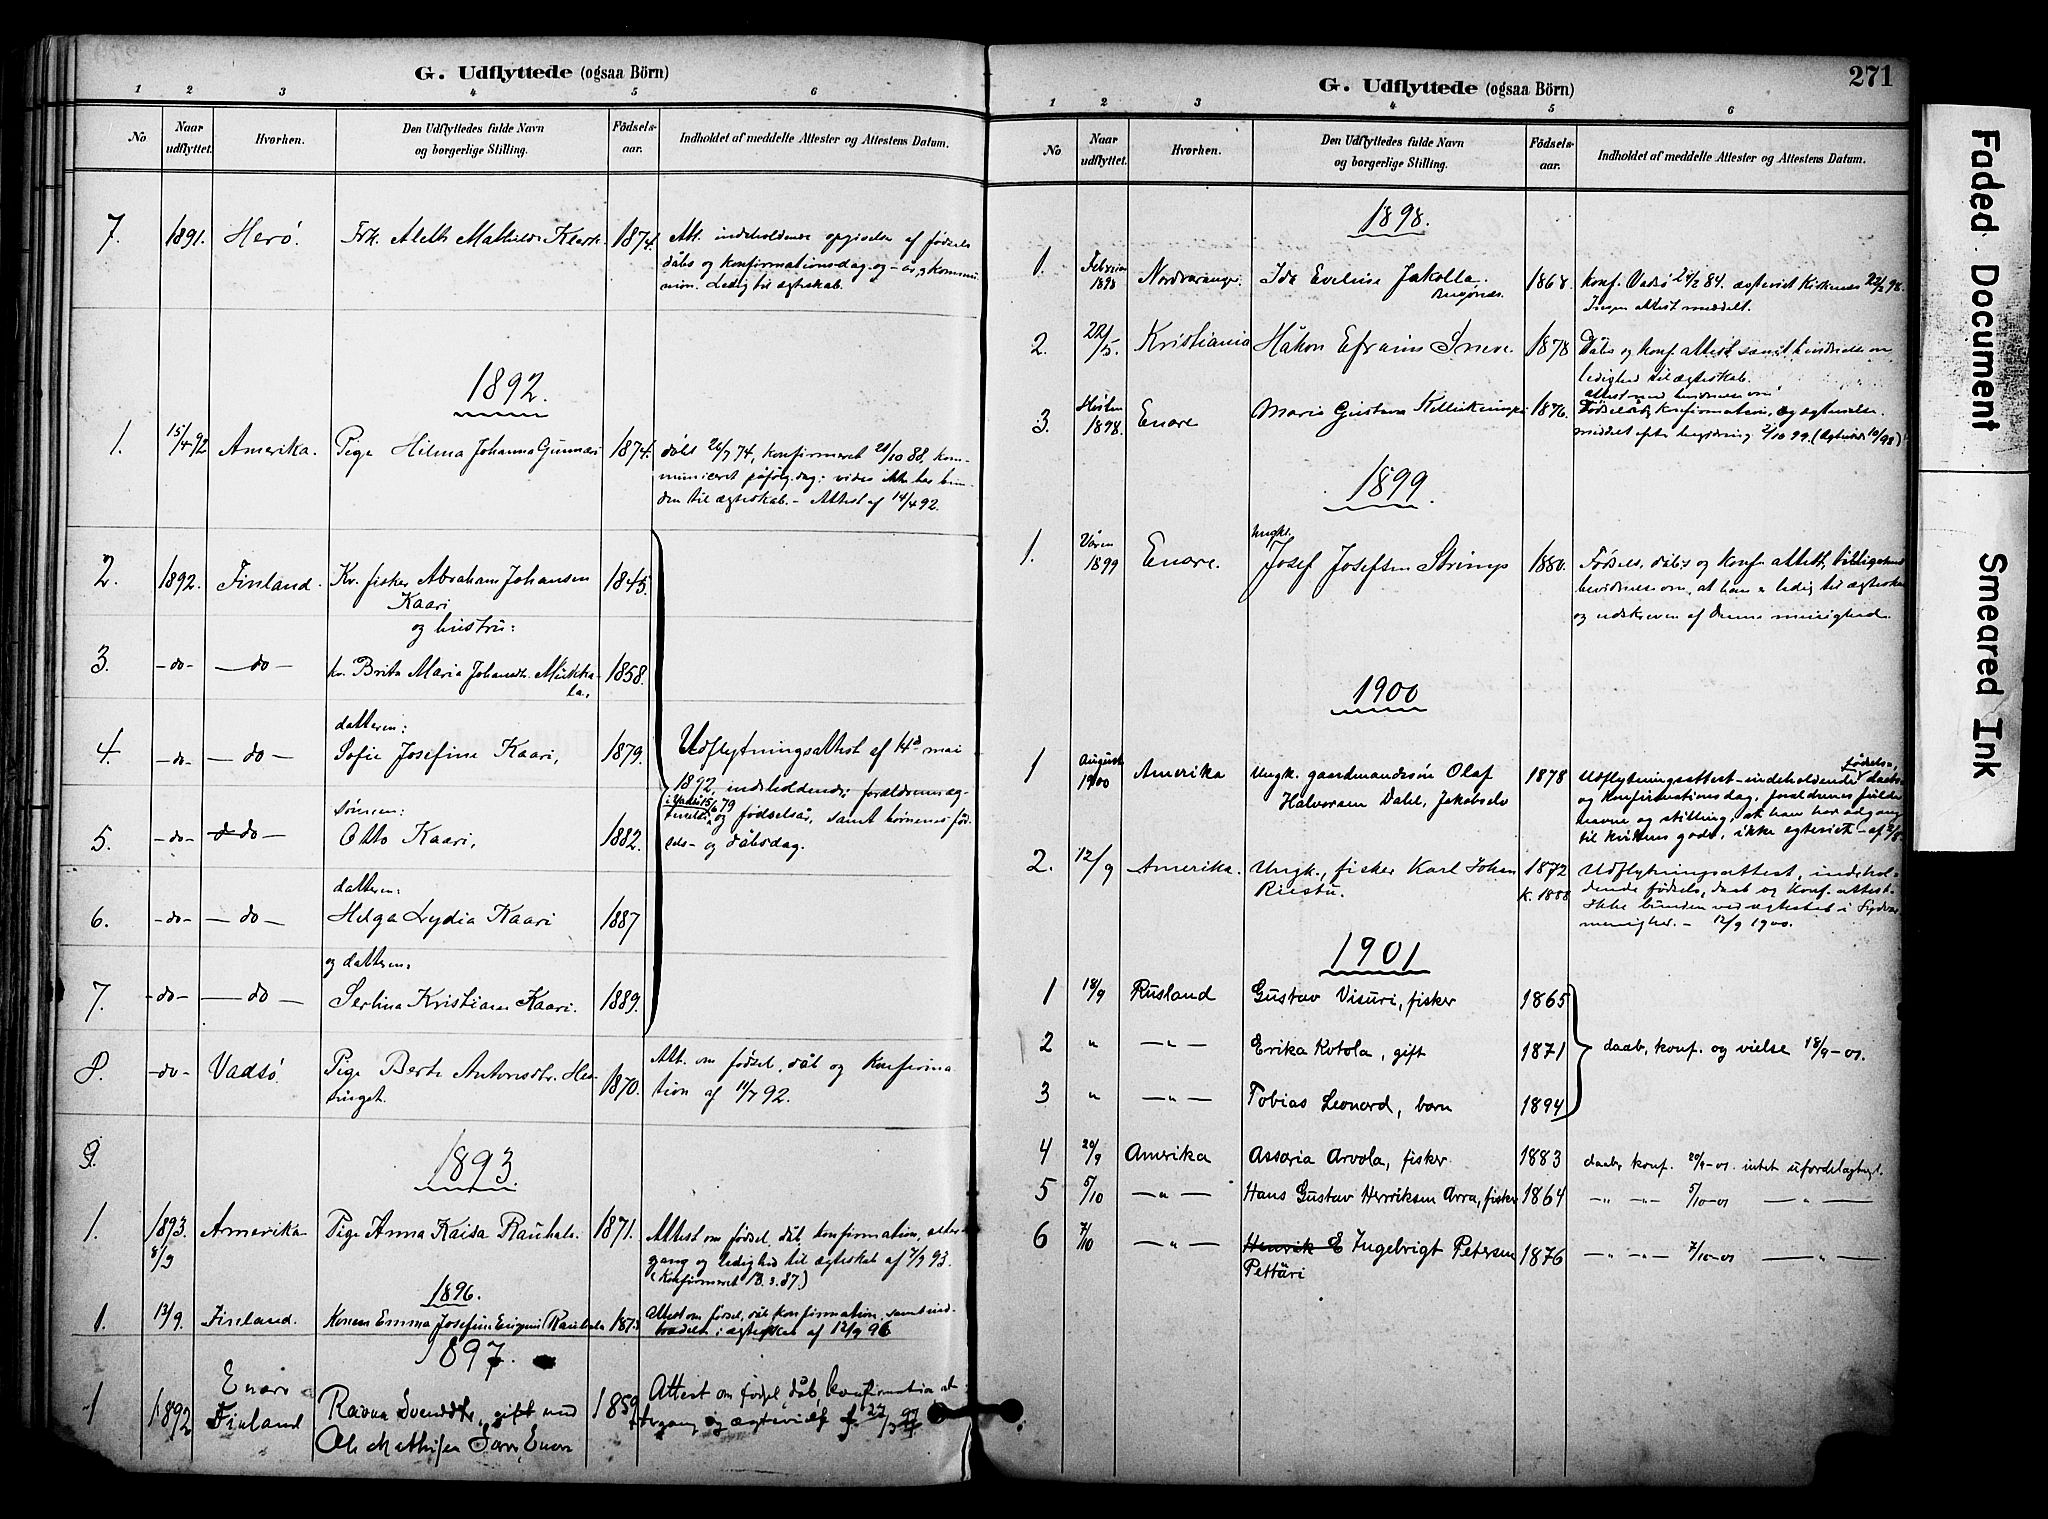 G. Udflyttede (ogsaa Börn)
1 2 3 4 5 6
No Naar udflyttet. Hvorhen. Den Udflyttedes fulde Navn og borgerlige Stilling. Fødsels-aar. Indholdet af meddelte Attester og Attestens Datum.
7. 1891. Herö. Frk. Aleth Mathilde Klerk 1874. Att. indeholdende opgivelse af fødsels
dåbs og konfirmationsdag og
nion. Ledig til ægteskab.
1892.
1. 15/4 92 Amerika. Pige Hilma Johanna Gunnari 1874. døbt 26/7 74, konfirmeret 28/10 88, kom-
municeret påfølg. dag: vides ikke
den til ægteskab. - Attest af 14/4 92.
2. 1892. Finland. Kv. fisker Abraham Johansen 1845.
Kaari
og hustru:
3. -do- -do- kv. Brita Maria Johansdt. Mukka- 1858.
la.
datteren:
4. -do- -do- Sofie Josefine Kaari, 1879. Udflytningsattest af 14d mai
1892, indeholdende: forældrenes æg-
i Vadsö 15/6 79
og fødselsår, samt börnenes fød-
sönnen:
5. -do- -do- Otto Kaari, 1882. sels- og dåbsdag.
datteren:
6. -do- -do- Helga Lydia Kaari 1887
og datteren:
7. -do- -do- Serlina Kristiane Kaari. 1889.
8. -do- Vadsö. Pige Berte Antonsdtr. Hei- 1870. Att. om fødsel, dåb og konfirma
tinget. tion af 11/7 92.
9.
1893.
1. 1893. 8/9 Amerika Pige Anna Kaisa Rauhala. 1871. Attest om fødsel, dåb, konfirmation, alter-
gang og ledighed til ægteskab af 7/9 93.
(Konfirmeret 18.9.87.)
1896.
1. 13/9. Finland. Konen Emma Josefine (Rauhala 1873 Attest om fødsel, dåb konfirmation, samt ind-
trædelse i ægteskab af 12/9 96
1897.
1 1892 Enare Finland Ravna Svendsdtr, gift med 1859 Attest om fødsel, dåb, konfirmation al-
Ole Mathisen Sarre, Enare tergang og ægtevielse af 27/3 97
G. Udflyttede (ogsaa Börn) 271
1 2 3 4 5 6
No Naar udflyttet. Hvorhen. Den Udflyttedes fulde Navn og borgerlige Stilling. Födsels-aar. Indholdet af meddelte Attester og Attestens Datum.
1898.
1. Februar 1898 Nordvaranger. Ida Eveline Jakolla. 1868. Konf. Vadsö 84. ægteviet Kirkenes 22/2 98.
Bugönes. Ingen attest meddelt.
2. 22/5. Kristiania Håkon Efraim Sneve 1878 Dåbs og konf. attest samt bevidnelse om
ledighed til ægteskab.
3. Hösten 1898. Enare Maria Gustava 1876. attest med bevidnelse om
Fødselsdag, konfirmation, og ægtevielse
meddelt efter begjæring 2/10 99.
1899.
1. Våren 1899 Enare. Ungk. Josef Josefsen Strimp 1880. Fødsels, dåbs og konf. attest,
bevidnelse om, at han er ledig til ægteskab
og udskreven af denne menighed.
1900
1 August 1900 Amerika Ungk. gaardmandssön Olaf 1878 Udflytningsattest indeholdende fødsels, daabs-
Halvorsen Dahl, Jakobselv og konfirmationsdag, forældrenes fulde
navne og stilling, at han har adgang
til kirkens gode, ikke ægteviet - af
2. 12/9 Amerika. Ungk., fisker Karl Johan 1872 Udflytningsattest, indehol-
Riestu. k. 1888 dende fødsels, daab og konf. attest.
Ikke bunden ved ægtested i Sydvar.
menighed. - 12/9 1900.
1901
1 18/9 Rusland Gustav Visuri, fisker 1865
2 " -"- Erika Kotola, gift 1871 daab, konf. og vielse 18/9-01.
3 " -"- Tobias Leonard, barn 1894
4 20/9 Amerika Assaria Arvola, fisker 1883 daab, konf. 20/9-01. intet ufordelagtigt.
5 5/10 -"- Hans Gustav Henriksen Arra, fisker 1864 -"- -"- 5/10-01 -"-
6 7/10 -"- Henrik E Ingebrigt Petersen 1876 -"- -"- 7/10-01 -"-
Pettäri
Faded Document
Smeared Ink